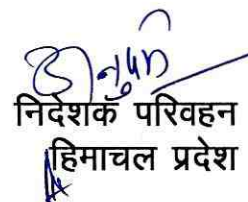 निदेशक परिवहन
हिमाचल प्रदेश